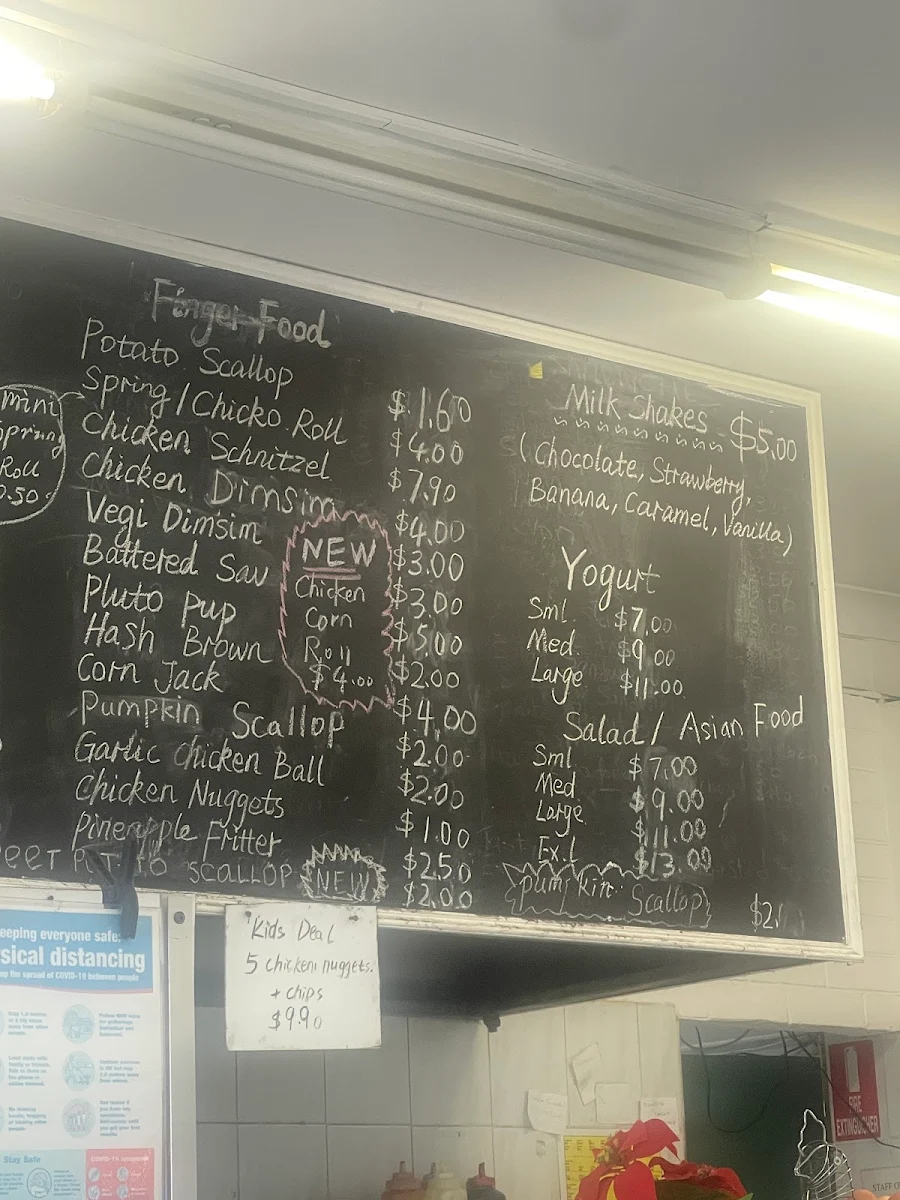 Finger Food
Potato Scallop $1.60
Spring/Chicko Roll $4.00
Chicken Schnitzel $7.90
Chicken Dimsim $4.00
Vegi Dimsim $3.00
Battered Sav $3.00
Pluto Pup $5.00
Hash Brown $2.00
Corn Jack $4.00
Pumpkin Scallop $2.00
Garlic Chicken Ball $2.00
Chicken Nuggets $1.00
Pineapple Fritter $2.50
SCALLOP NEW $2.00
mini
Spring
Roll
NEW
Chicken
Corn
Roll
$4.00
Milk Shakes $5.00
(Chocolate, Strawberry,
Banana, Caramel, Vanilla)
Yogurt
Sml $7.00
Med. $9.00
Large $11.00
Salad / Asian Food
Sml $7.00
Med $9.00
Large $11.00
Ex.L $13.00
pumpkin Scallop
Kids Deal
5 chicken nuggets.
+ chips
$9.90
eeping everyone safe:
sical distancing
the spread of COVID-19 between people
Stay Safe
FIRE
EXTINGUISHER
STAFF